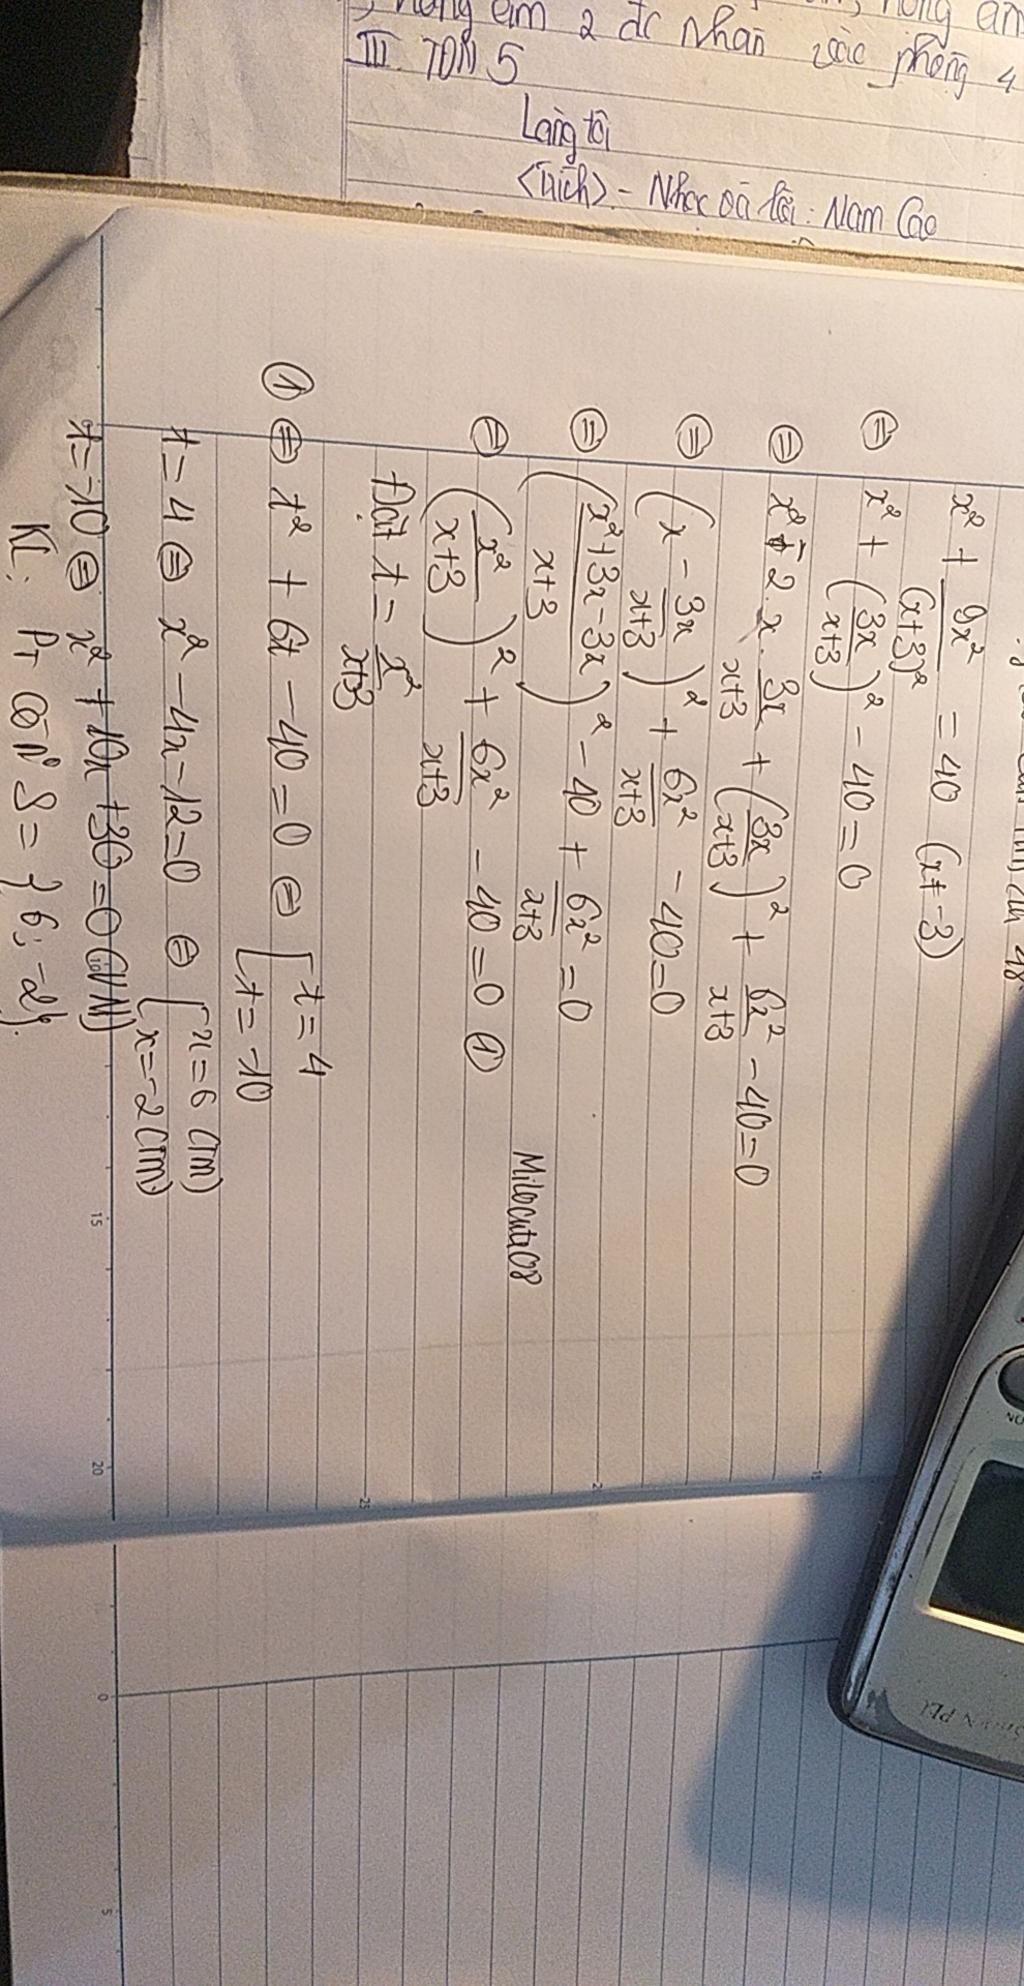 2 đc nhân vào phòng 4
III. TON 5
Làng tôi
<Trích> - Nhạc và lời: Nam Cao
x² + 9x²/(x+3)² = 40 (x ≠ -3)
⇔ x² + (3x/(x+3))² - 40 = 0
⇔ x² - 2.x.3x/(x+3) + (3x/(x+3))² + 6x²/(x+3) - 40 = 0
⇔ (x - 3x/(x+3))² + 6x²/(x+3) - 40 = 0
⇔ ((x²+3x-3x)/(x+3))² - 40 + 6x²/(x+3) = 0
⇔ (x²/(x+3))² + 6x²/(x+3) - 40 = 0 ①
Milocute08
Đặt t = x²/(x+3)
① ⇔ t² + 6t - 40 = 0 ⇔ [t = 4
[t = -10
t = 4 ⇔ x² - 4x - 12 = 0 ⇔ [x = 6 (TM)
[x = -2 (TM)
t = -10 ⇔ x² + 10x + 30 = 0 (VN)
KL: PT có n° S = {6; -2}.
15
20
25
0
5